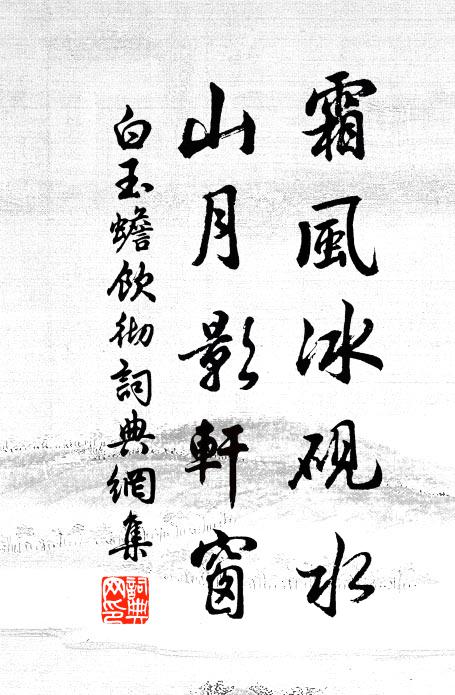 霜風冰硯水
山月影軒窗
白玉蟾飲彻詞典網集
詞典網印